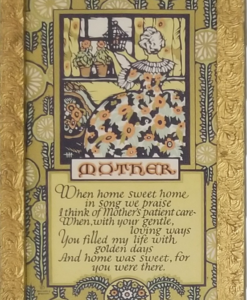 MOTHER
When home sweet home,
in song we praise
I think of Mother's patient care-
When, with your gentle,
loving ways
You filled my life with
golden days
And home was sweet, for
you were there.